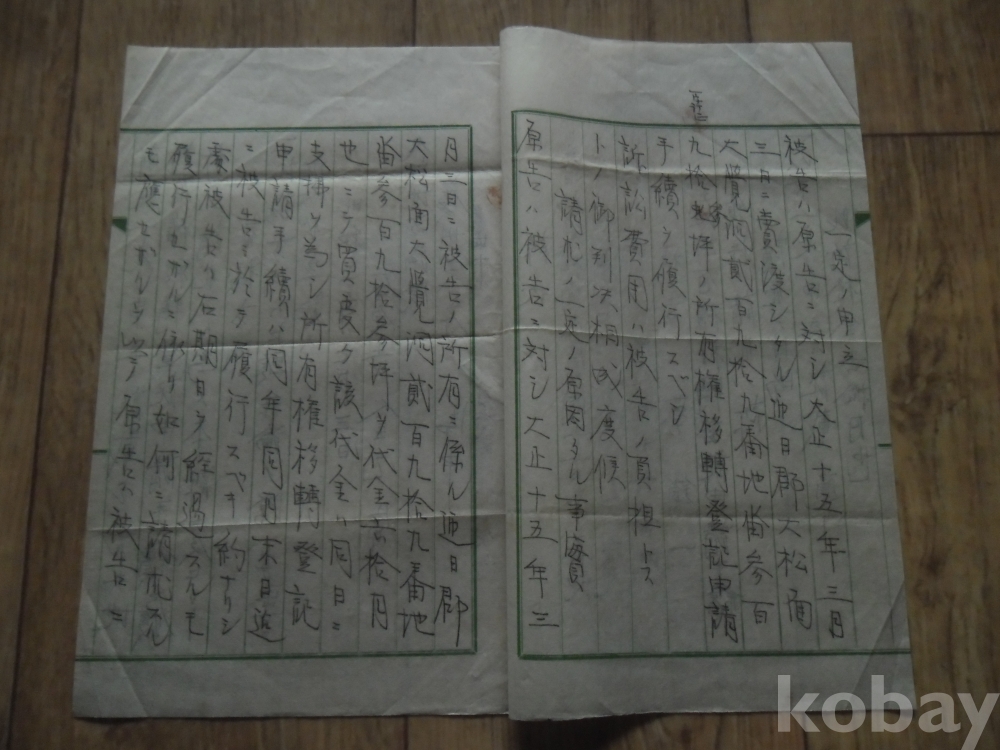 一定ノ申立
被告ハ原告ニ対シ大正十五年三月
三日ニ賣渡シタル迎日郡大松面
大覺洞貳百九拾九番地畓参百
九拾参坪ノ所有権移轉登記申請
手續ヲ履行スベシ
訴訟費用ハ被告ノ負担トス
トノ御判决相成度候
請求ノ一定ノ原因タル事實
原告ハ被告ニ対シ大正十五年三
月三日ニ被告ノ所有ニ係ル迎日郡
大松面大覺洞貳百九拾九番地
畓参百九拾参坪ヲ代金六拾円
也ニテ買受ケ該代金ハ同日ニ
支拂ヲ為シ所有権移轉登記
申請手續ハ同年同月末日迄
ニ被告ニ於テ履行スベキ約ナリシ
處被告ハ右期日ヲ経過スルモ
履行セザルニ依リ如何ニ請求
モ應セザルヲ以テ原告ハ被告ニ
kobay